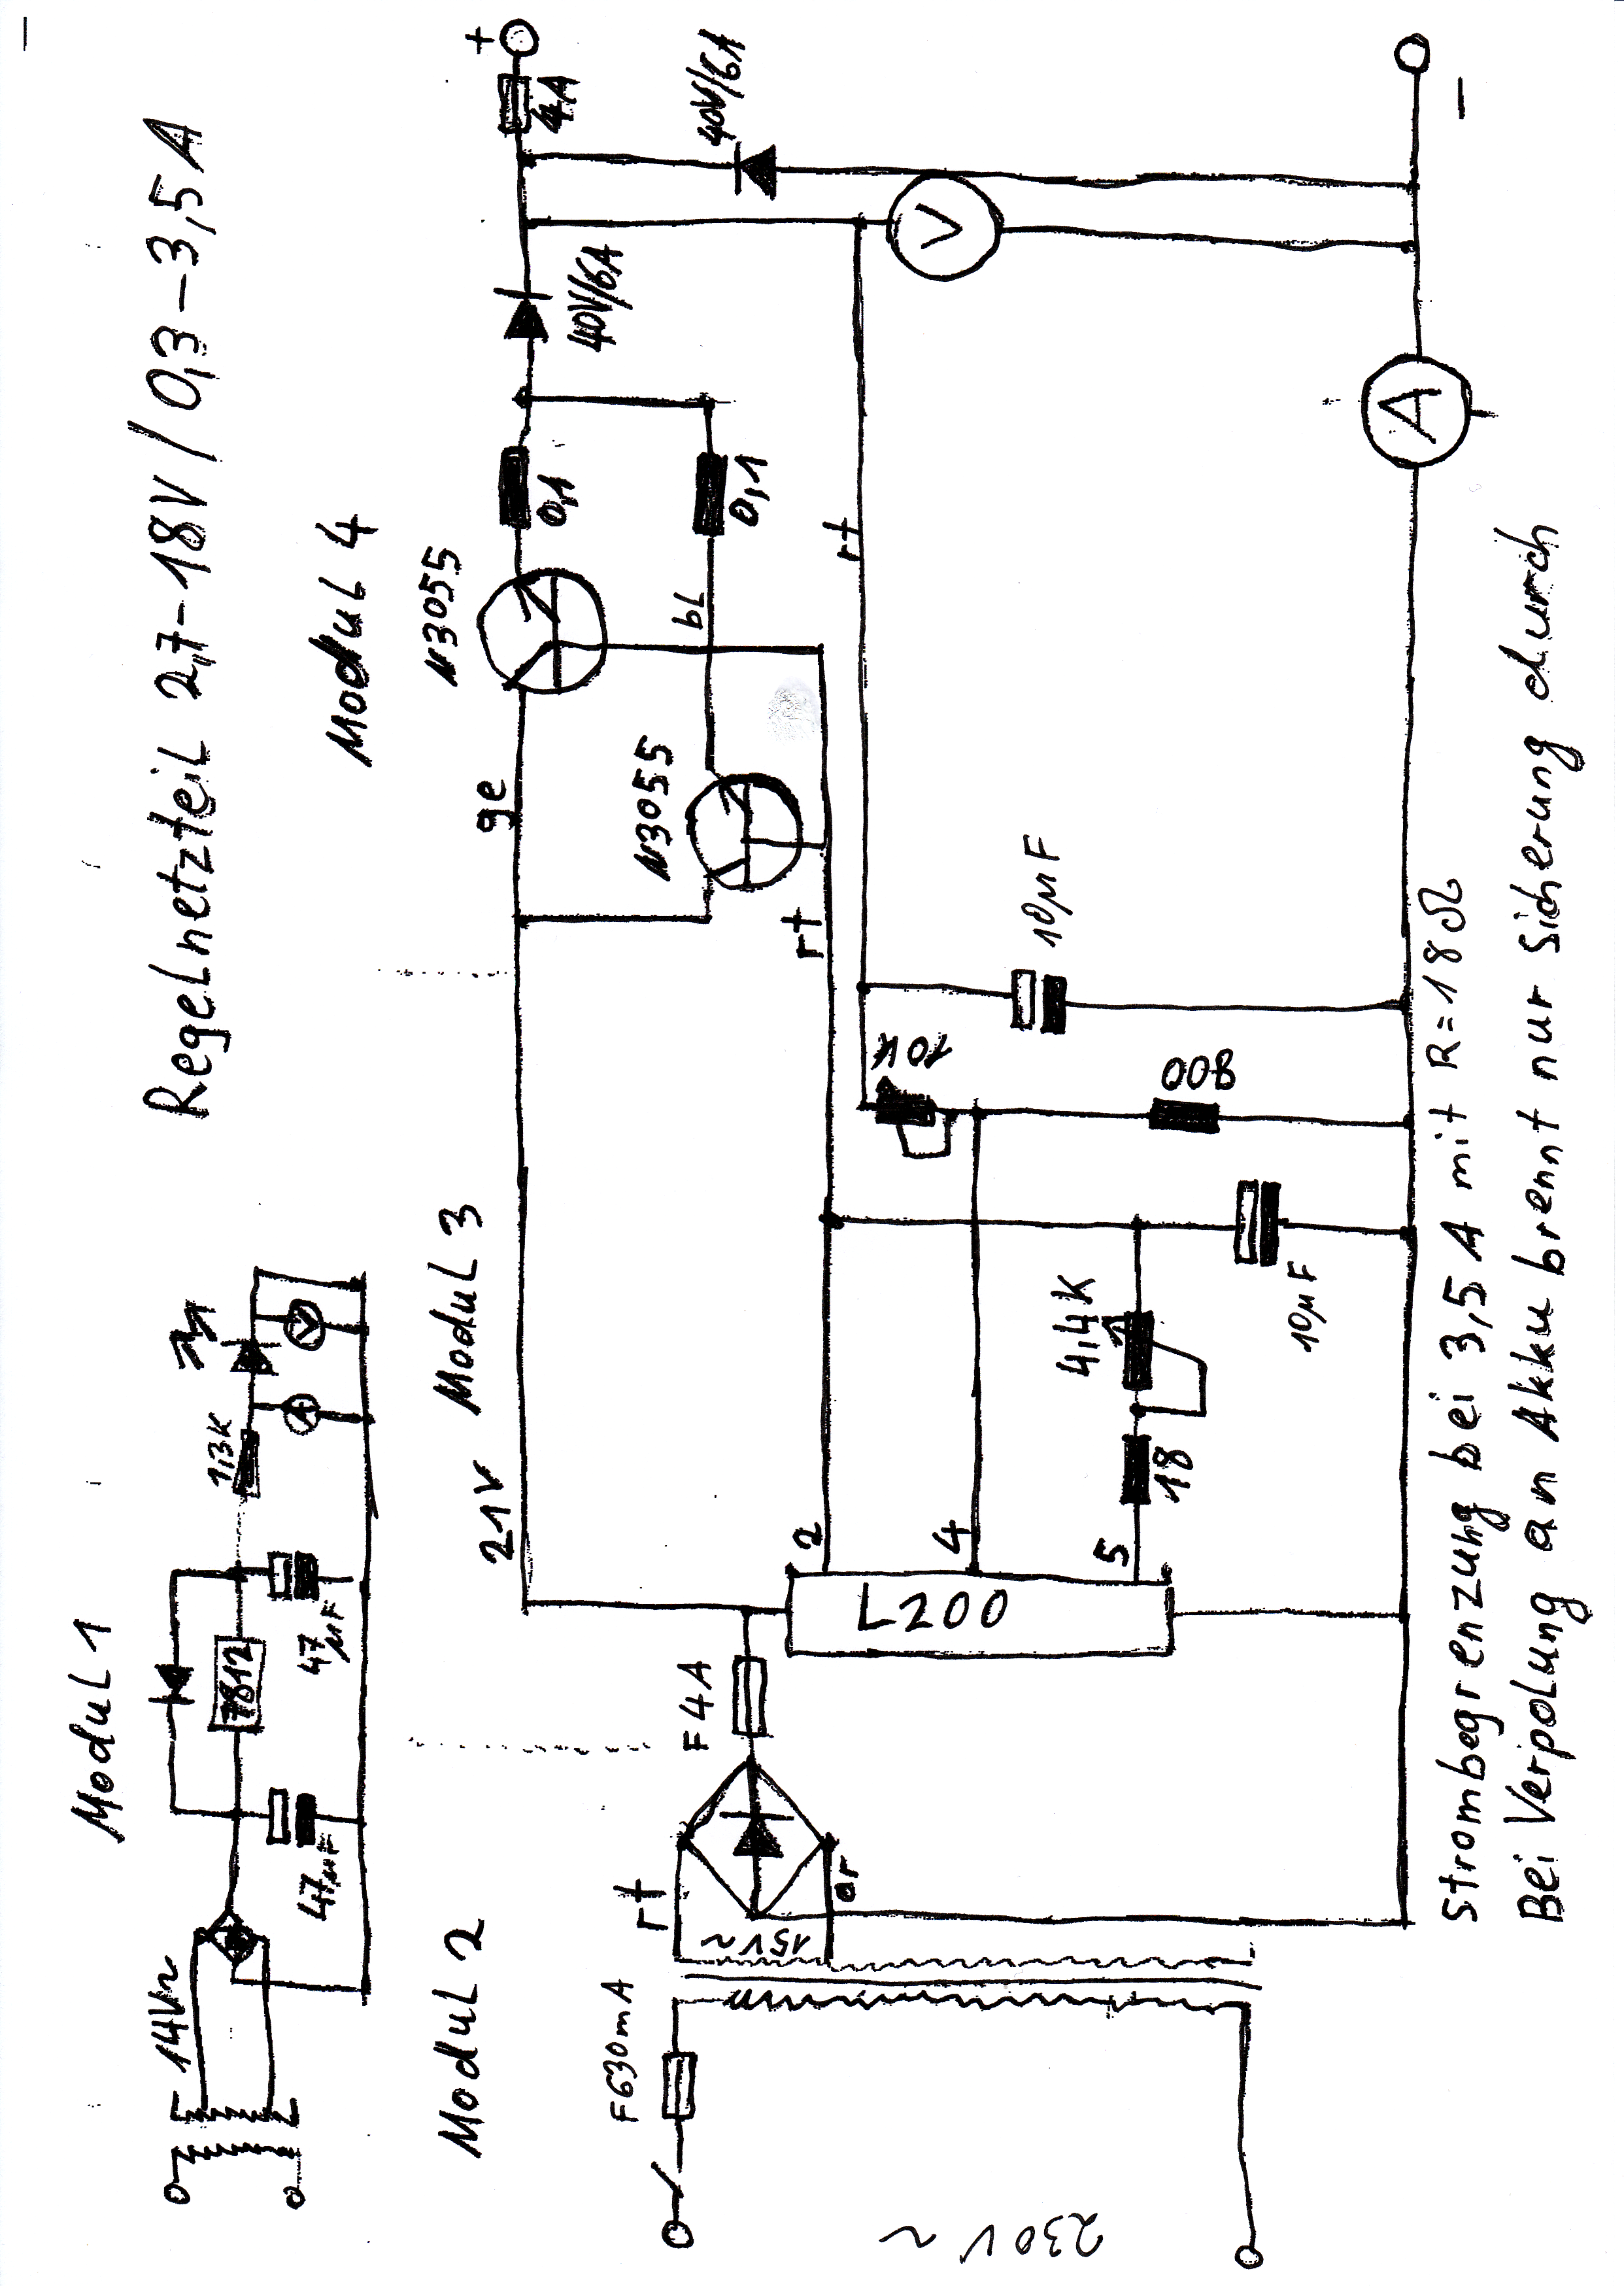 Regelnetzteil 2,7-18V / 0,3-3,5A
Modul 1
14V~
47µF
7812
47µF
1,3K
A
V
Modul 2
Modul 3
Modul 4
230V~
F630mA
15V~
rt
or
F4A
21V
L200
2
4
5
18
4,4K
10µF
10K
800
10µF
ge
rt
N3055
N3055
bL
0,1
0,1
rt
40V/6A
40V/6A
4A
V
A
+
-
Strombegrenzung bei 3,5A mit R=18Ω
Bei Verpolung an Akku brennt nur Sicherung durch